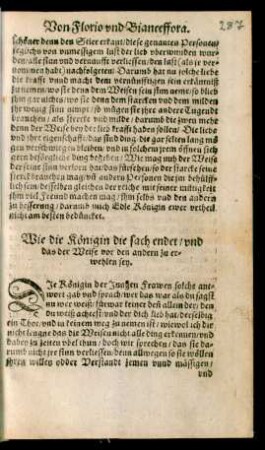 Von Florio vnd Bianceffora.
287
schöner denn den Stier erkant/diese genanten Personen/
so gleich von vnmessigem lust der lieb vberwunden wur-
den/alle sinn vnd vernunfft verliessen/den lust (als jr ver-
nommen habt) nachfolgeten. Darumb hat nu solche liebe
die krafft vnd macht dem vernünfftigen sein erkäntnuß
zu nemen/wo sie denn dem Weisen sein sinn neme/so blieb
jhm gar nichts/wo sie denn dem starcken vnd dem milden
jhr wenig sinn nimpt/so mügen sie jhre andere Tugendt
brauchen/als stercke vnd milde/darumb die zwen mehr
denn der Weise bey der lieb krafft haben sollen. Die liebe
vnd jhre eigenschafft/das sind ding die gar selten lang mö-
gen verschwiegen bleiben/vnd in solchem jrem öffnen sich
gern besorgliche ding begeben/Wie mag nun der Weise
der seine sinn verlorn hat/das fürsehen/so der starcke seine
sterck brauchen mag/mit andern Personen die jm behülff-
lich sein/desselben gleichen der reiche mit seiner miltigkeit
jhm viel Freund machen mag/jhm selbs vnd den andern
zu besserung/darumb mich Edle Königin ewer vrtheil
nicht am besten bedüncket.
Wie die Königin die sach endet/vnd
das der Weise vor den andern zu er-
wehlen sey.
DIe Königin der Jungen Frawen solche ant-
wort gab vnd sprach/wer das war als du sagst
nu wer weiß/fürwar keiner denn allein der/den
du weiß achtest/vnd der dich lieb hat/derselbig
ein Thor/vnd in keinem weg zu nemen ist/wiewol ich die
nicht leugne das die Weisen nicht alle ding erkennen/vnd
daher zu zeiten vbel thun/doch wir sprechen/das sie da-
rumb nicht jre sinn verliesen/denn allwegen so sie wöllen
jhren willen odder Verstandt zemen vnnd mässigen/
vnd